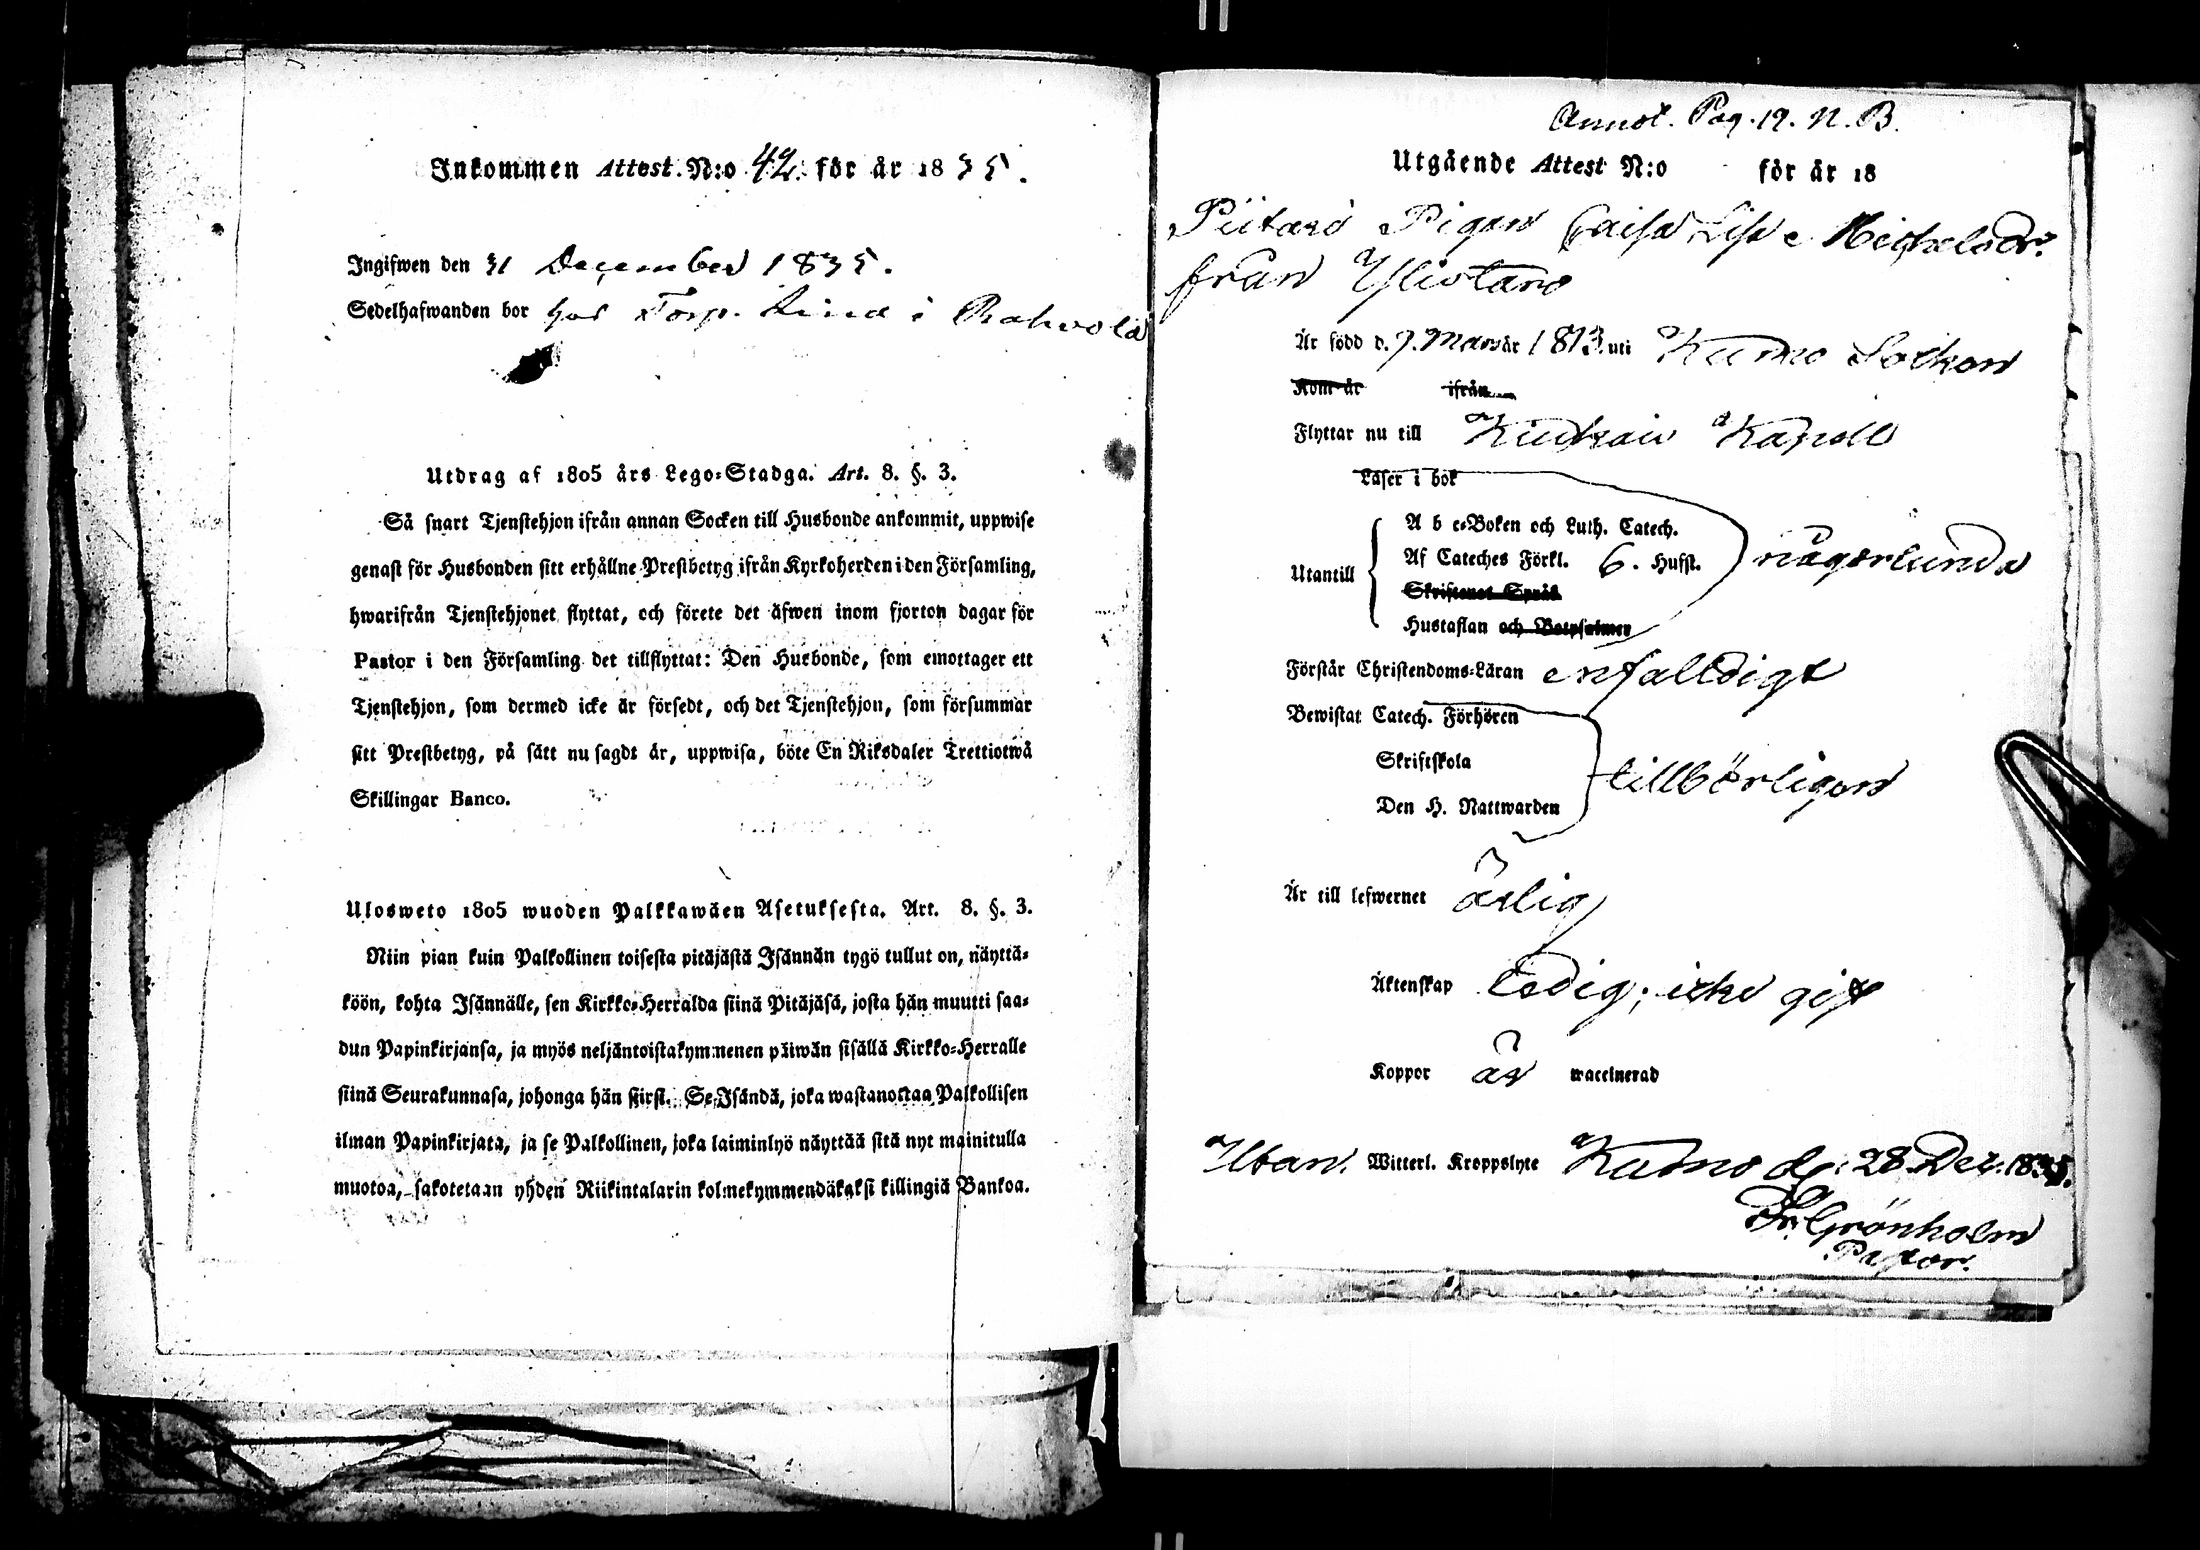 Inkommen Attest. N:o 42. för år 1835.
Ingifwen den 31 December 1835.
Sedelhafwanden bor hos Torp. Lina i
Utdrag af 1805 års Lego-Stadga. Art. 8. §. 3.
Så snart Tjenstehjon ifrån annan Socken till Husbonde ankommit, uppwise
genast för Husbonden sitt erhållne Prestbetyg ifrån Kyrkoherden i den Församling,
hwarifrån Tjenstehjonet flyttat, och förete det äfwen inom fjorton dagar för
Pastor i den Församling det tillflyttat: Den Husbonde, som emottager ett
Tjenstehjon, som dermed icke är försedt, och det Tjenstehjon, som försummar
sitt Prestbetyg, på sätt nu sagdt är, uppwisa, böte En Riksdaler Trettiotwå
Skillingar Banco.
Ulosweto 1805 wuoden Palkkawäen Asetuksesta. Art. 8. §. 3.
Niin pian kuin Palkollinen toisesta pitäjästä Isännän tygö tullut on, näyttä-
köön, kohta Isännälle, sen Kirkko-Herralda siinä Pitäjäsä, josta hän muutti saa-
dun Papinkirjansa, ja myös neljäntoistakymmenen päiwän sisällä Kirkko-Herralle
siinä Seurakunnasa, johonga hän siirsi. Se Isändä, joka wastanottaa Palkollisen
ilman Papinkirjata, ja se Palkollinen, joka laiminlyö näyttää sitä nyt mainitulla
muotoa, sakotetaan yhden Riikintalarin kolmekymmendäkaksi killingiä Bankoa.
Annot. Pag. 19. N. B.
Utgående Attest N:o för år 18
Pigan Caisa Lisa Michelsdr.
från Ylistaro
Är född d. 7. Mars år 1813. uti Kumo Socken
Kom år ifrån
Flyttar nu till Kapell
Läser i bok
Utantill
A b c-Boken och Luth. Catech.
Af Cateches Förkl. 6. Hufst.
någorlunda
Skriftenes Språk
Hustaflan och Botpsalmer
Förstår Christendoms-Läran enfalldigt
Bewistat Catech. Förhören
Skriftskola
tillbörligen
Den H. Nattwarden
Är till lefwernet ärlig
Äktenskap ledig; icke gift
Koppor är waccinerad
Utan. Witterl. Kroppslyte Kumo d. 28 Dec. 1835.
Fr. Grönholm
Pastor.